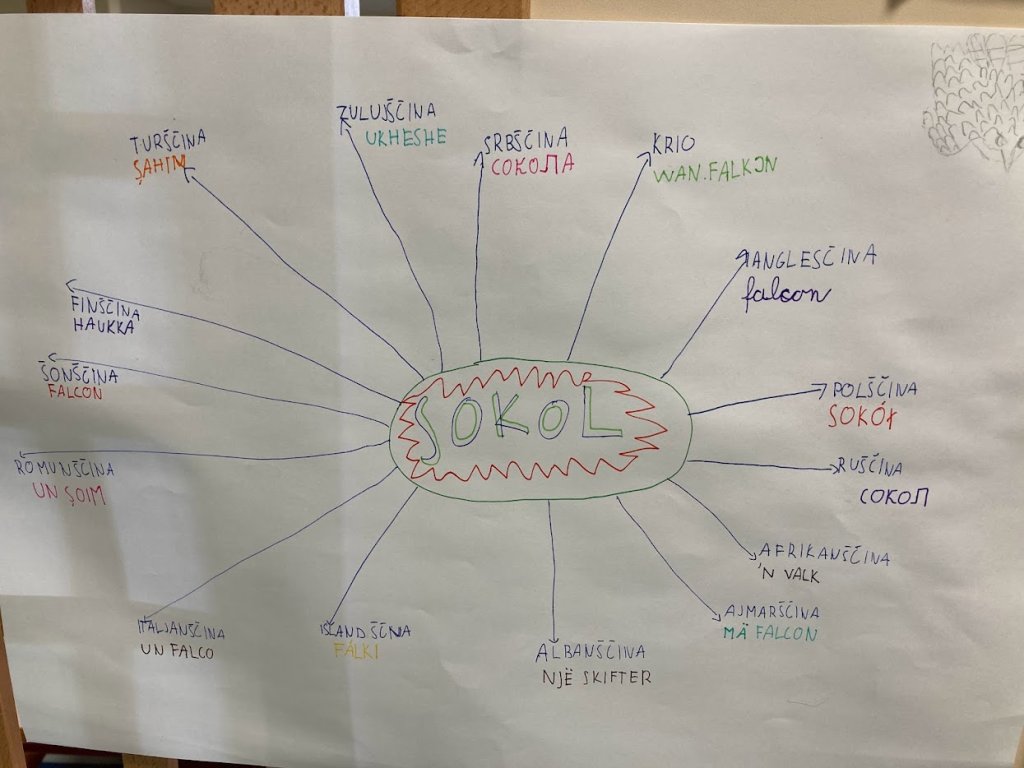 SOKOL
TURŠČINA
ŞAHIN
ZULUJŠČINA
UKHESHE
SRBŠČINA
СОКОЛА
KRIO
WAN.FALKƆN
ANGLEŠČINA
falcon
POLŠČINA
SOKÓł
RUŠČINA
СОКОЛ
AFRIKANŠČINA
'N VALK
AJMARŠČINA
MÄ FALCON
ALBANŠČINA
NJË SKIFTER
ISLANDŠČINA
FALKI
ITALJANŠČINA
UN FALCO
ROMUNŠČINA
UN ŞOIM
ŠONŠČINA
FALCON
FINŠČINA
HAUKKA